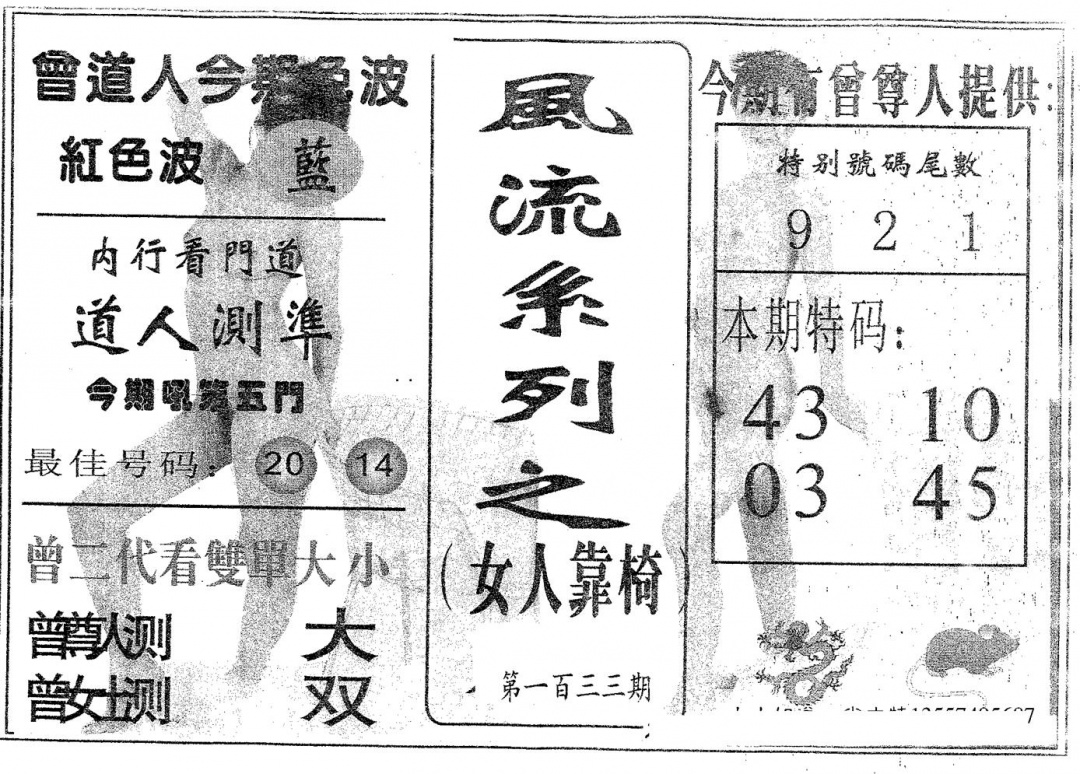 曾道人今期色波
紅色波 藍
内行看門道
道人測準
今期吼第五門
最佳号码: 20 14
曾二代看雙單大小
曾尊人测 大
曾女士测 双
風流系列之
(女人靠椅)
第一百三三期
今期有曾尊人提供:
特别號碼尾數
9 2 1
本期特码:
43 10
03 45